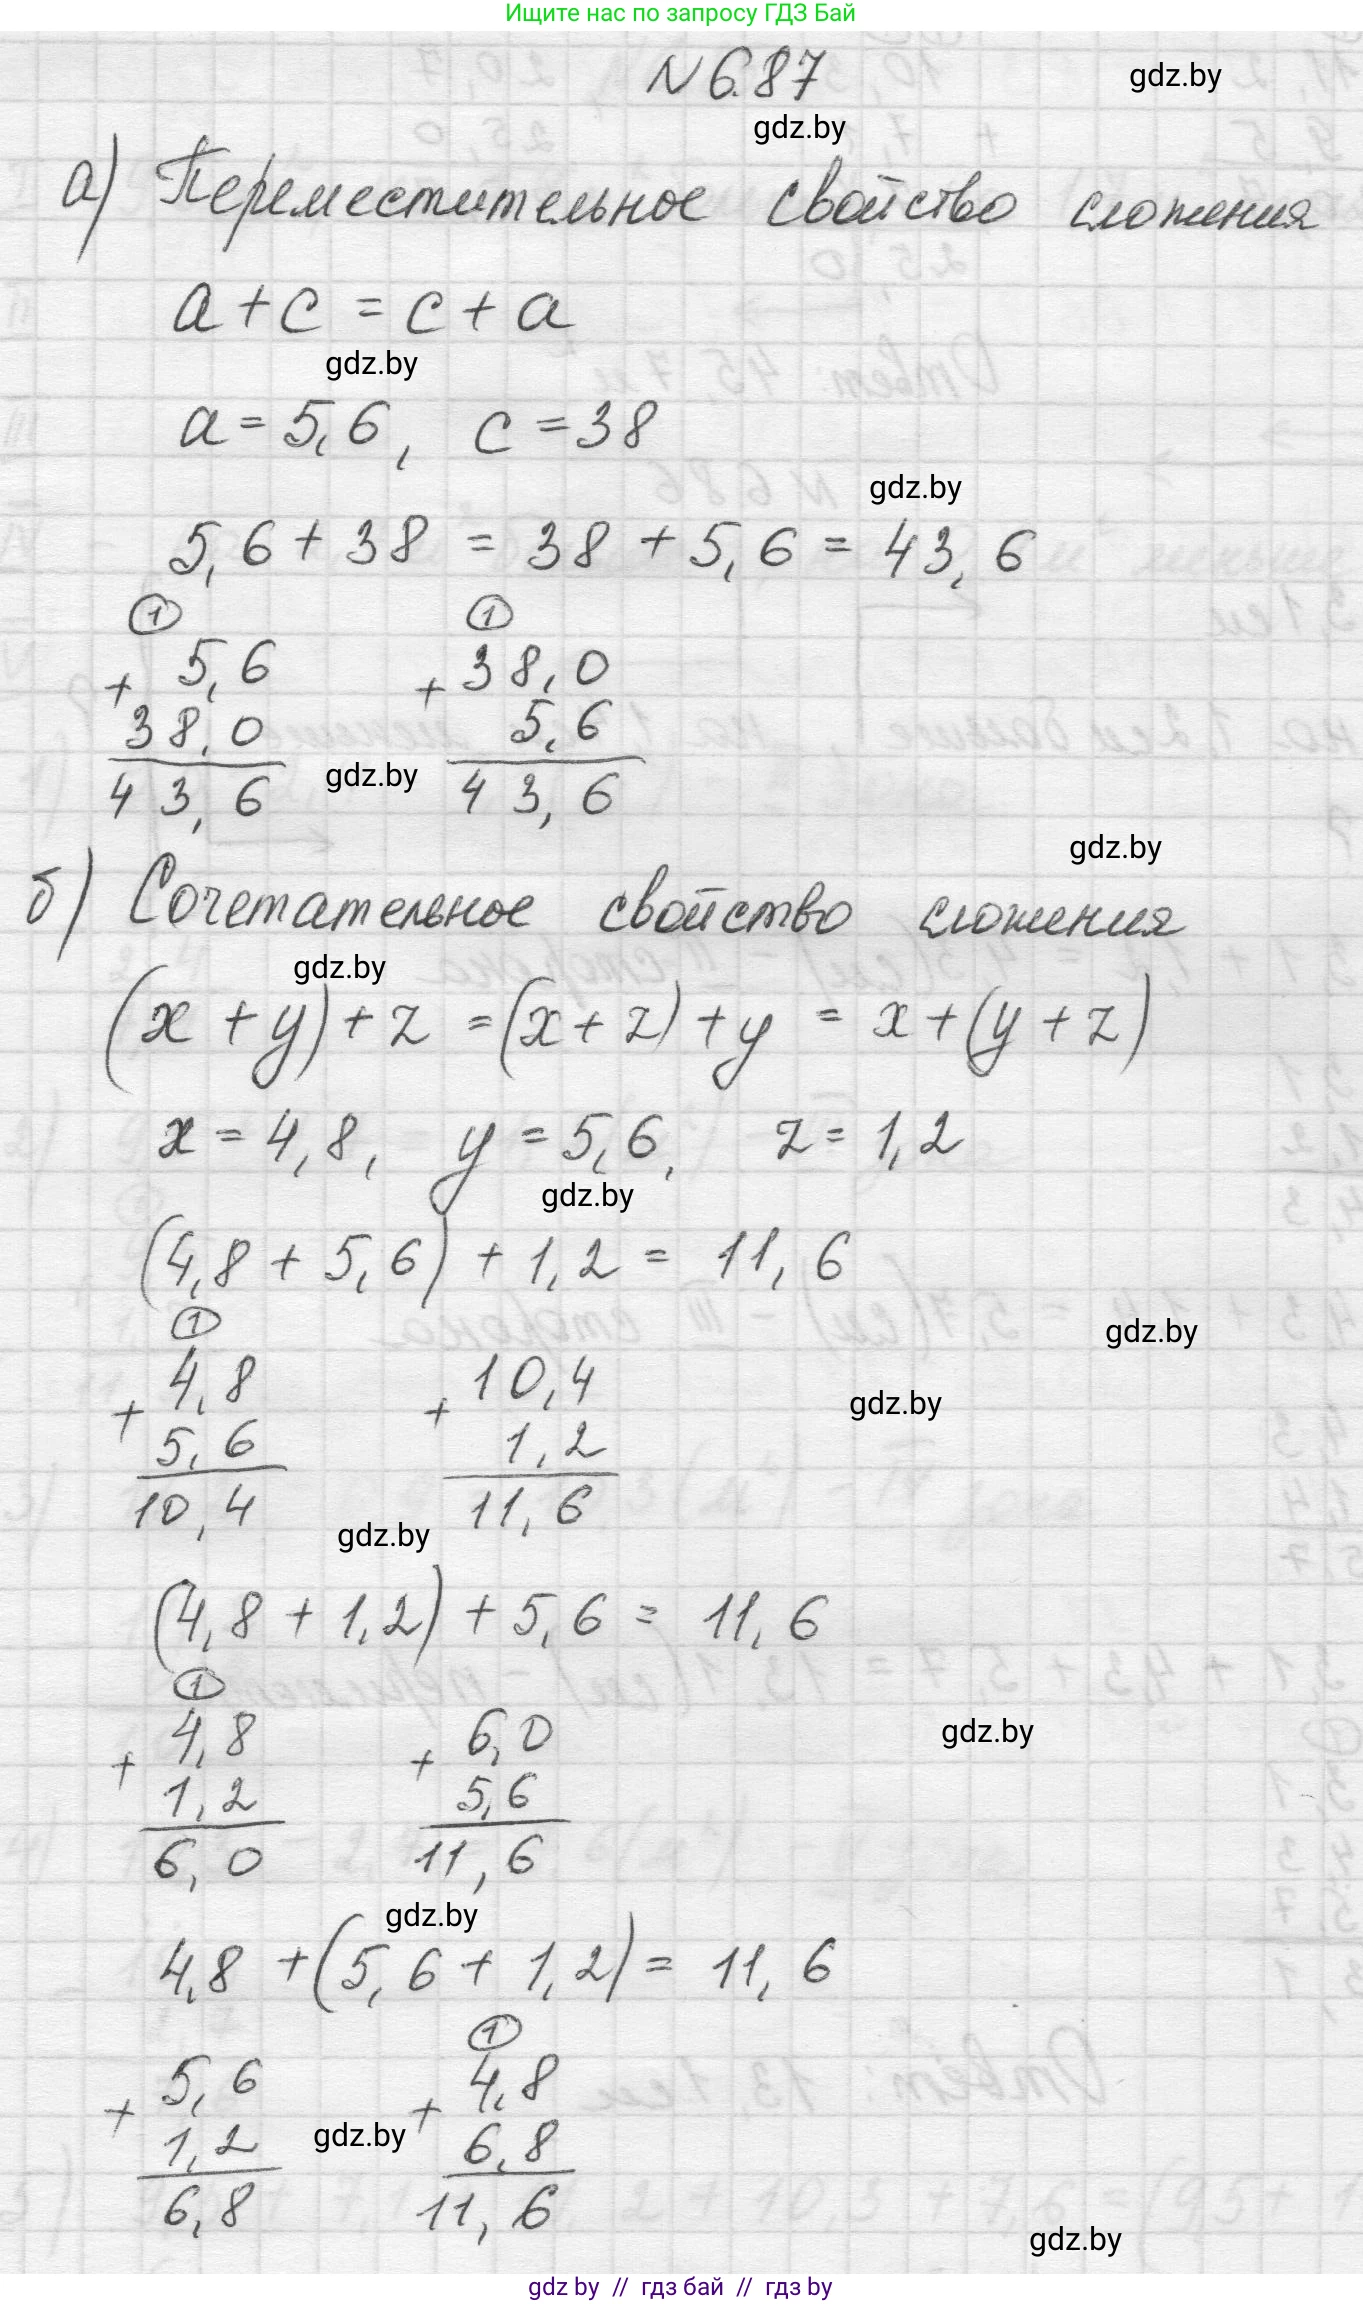 Ищите нас по запросу ГДЗ Бай
N 6.87
gdz.by
gdz.by
а) Переместительное свойство сложения
a + c = c + a
gdz.by
a = 5,6, c = 38
gdz.by
5,6 + 38 = 38 + 5,6 = 43,6
1 1
+ 5,6 + 38,0
38,0 5,6
43,6 gdz.by 43,6
gdz.by
б) Сочетательное свойство сложения
gdz.by
(x + y) + z = (x + z) + y = x + (y + z)
x = 4,8, y = 5,6, z = 1,2
gdz.by
(4,8 + 5,6) + 1,2 = 11,6
1
gdz.by
+ 4,8 + 10,4
gdz.by
5,6 1,2
10,4 11,6
gdz.by
(4,8 + 1,2) + 5,6 = 11,6
1
+ 4,8 + 6,0 gdz.by
1,2 5,6
6,0 11,6
gdz.by
4,8 + (5,6 + 1,2) = 11,6
1
+ 5,6 + 4,8
1,2 gdz.by 6,8
6,8 11,6
gdz.by
gdz by // гдз бай // гдз by